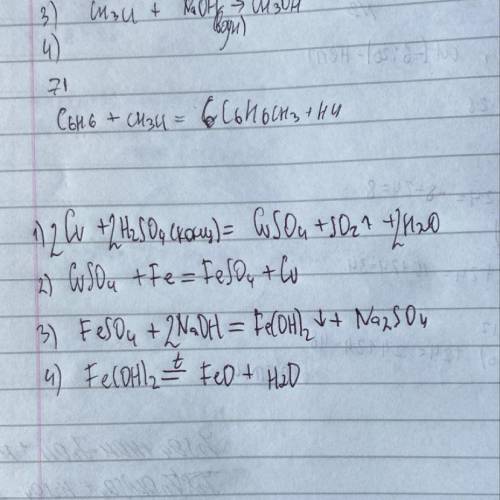 3) CH3Cl + NaOH → CH3OH
(водн)
4)
71
C6H6 + CH3Cl = C6H6CH3 + HCl
1) 2Cu + 2H2SO4 (конц) = CuSO4 + SO2↑ + 2H2O
2) CuSO4 + Fe = FeSO4 + Cu
3) FeSO4 + 2NaOH = Fe(OH)2↓ + Na2SO4
4) Fe(OH)2 =t= FeO + H2O